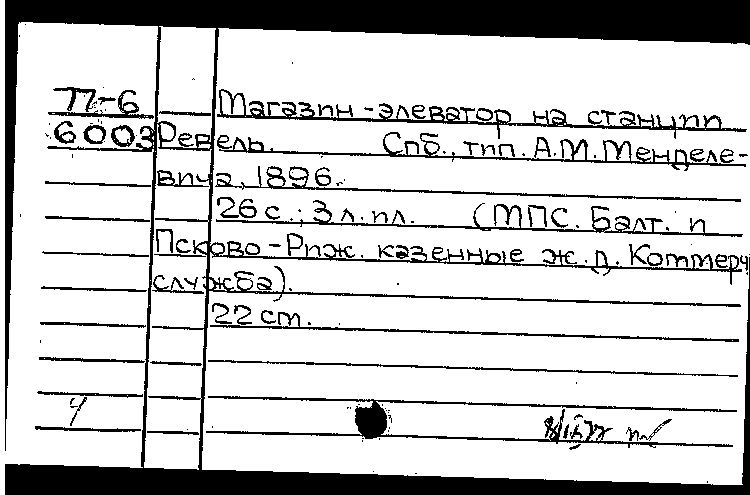 П-6 Магазин-элеватор на станции
6003 Ревель. Спб., тип. А.М. Менделе-
вича, 1896.
26 с.; 3 л. пл. (МПС. Балт. и
Псково-Риж. казенные ж.д. Коммерч
служба).
22 см.